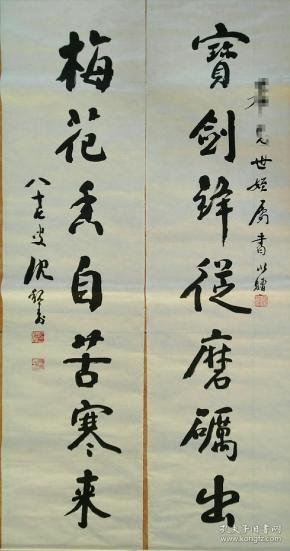 寶劍鋒從磨礪出
兄世嫂屬書以贈
梅花香自苦寒来
八十七叟沈
孔夫子旧书网
www.kongfz.com